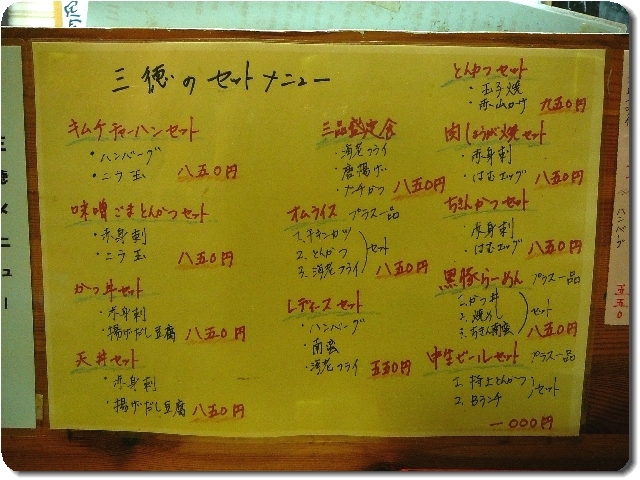 三徳のセットメニュー
キムチチャーハンセット
・ハンバーグ
・ニラ玉
八五〇円
味噌ごまとんかつセット
・赤身刺
・ニラ玉
八五〇円
かつ丼セット
・赤身刺
・揚げだし豆腐
八五〇円
天丼セット
・赤身刺
・揚げだし豆腐
八五〇円
三品盛定食
・海老フライ
・唐揚げ
八五〇円
オムライス プラス一品
1.チキンカツ
2.とんかつ
3.海老フライ
セット
八五〇円
レディースセット
・ハンバーグ
・南蛮
・海老フライ
五五〇円
とんかつセット
・玉子焼
・赤山かけ
九五〇円
肉しょうが焼セット
・赤身刺
・はむエッグ
八五〇円
ちきんかつセット
・赤身刺
・はむエッグ
八五〇円
黒豚らーめん プラス一品
1.かつ丼
2.焼めし
3.ちきん南蛮
セット
八五〇円
中生ビールセット プラス一品
1.特上とんかつ
2.Bランチ
セット
一〇〇〇円
ハンバーグ
五五〇